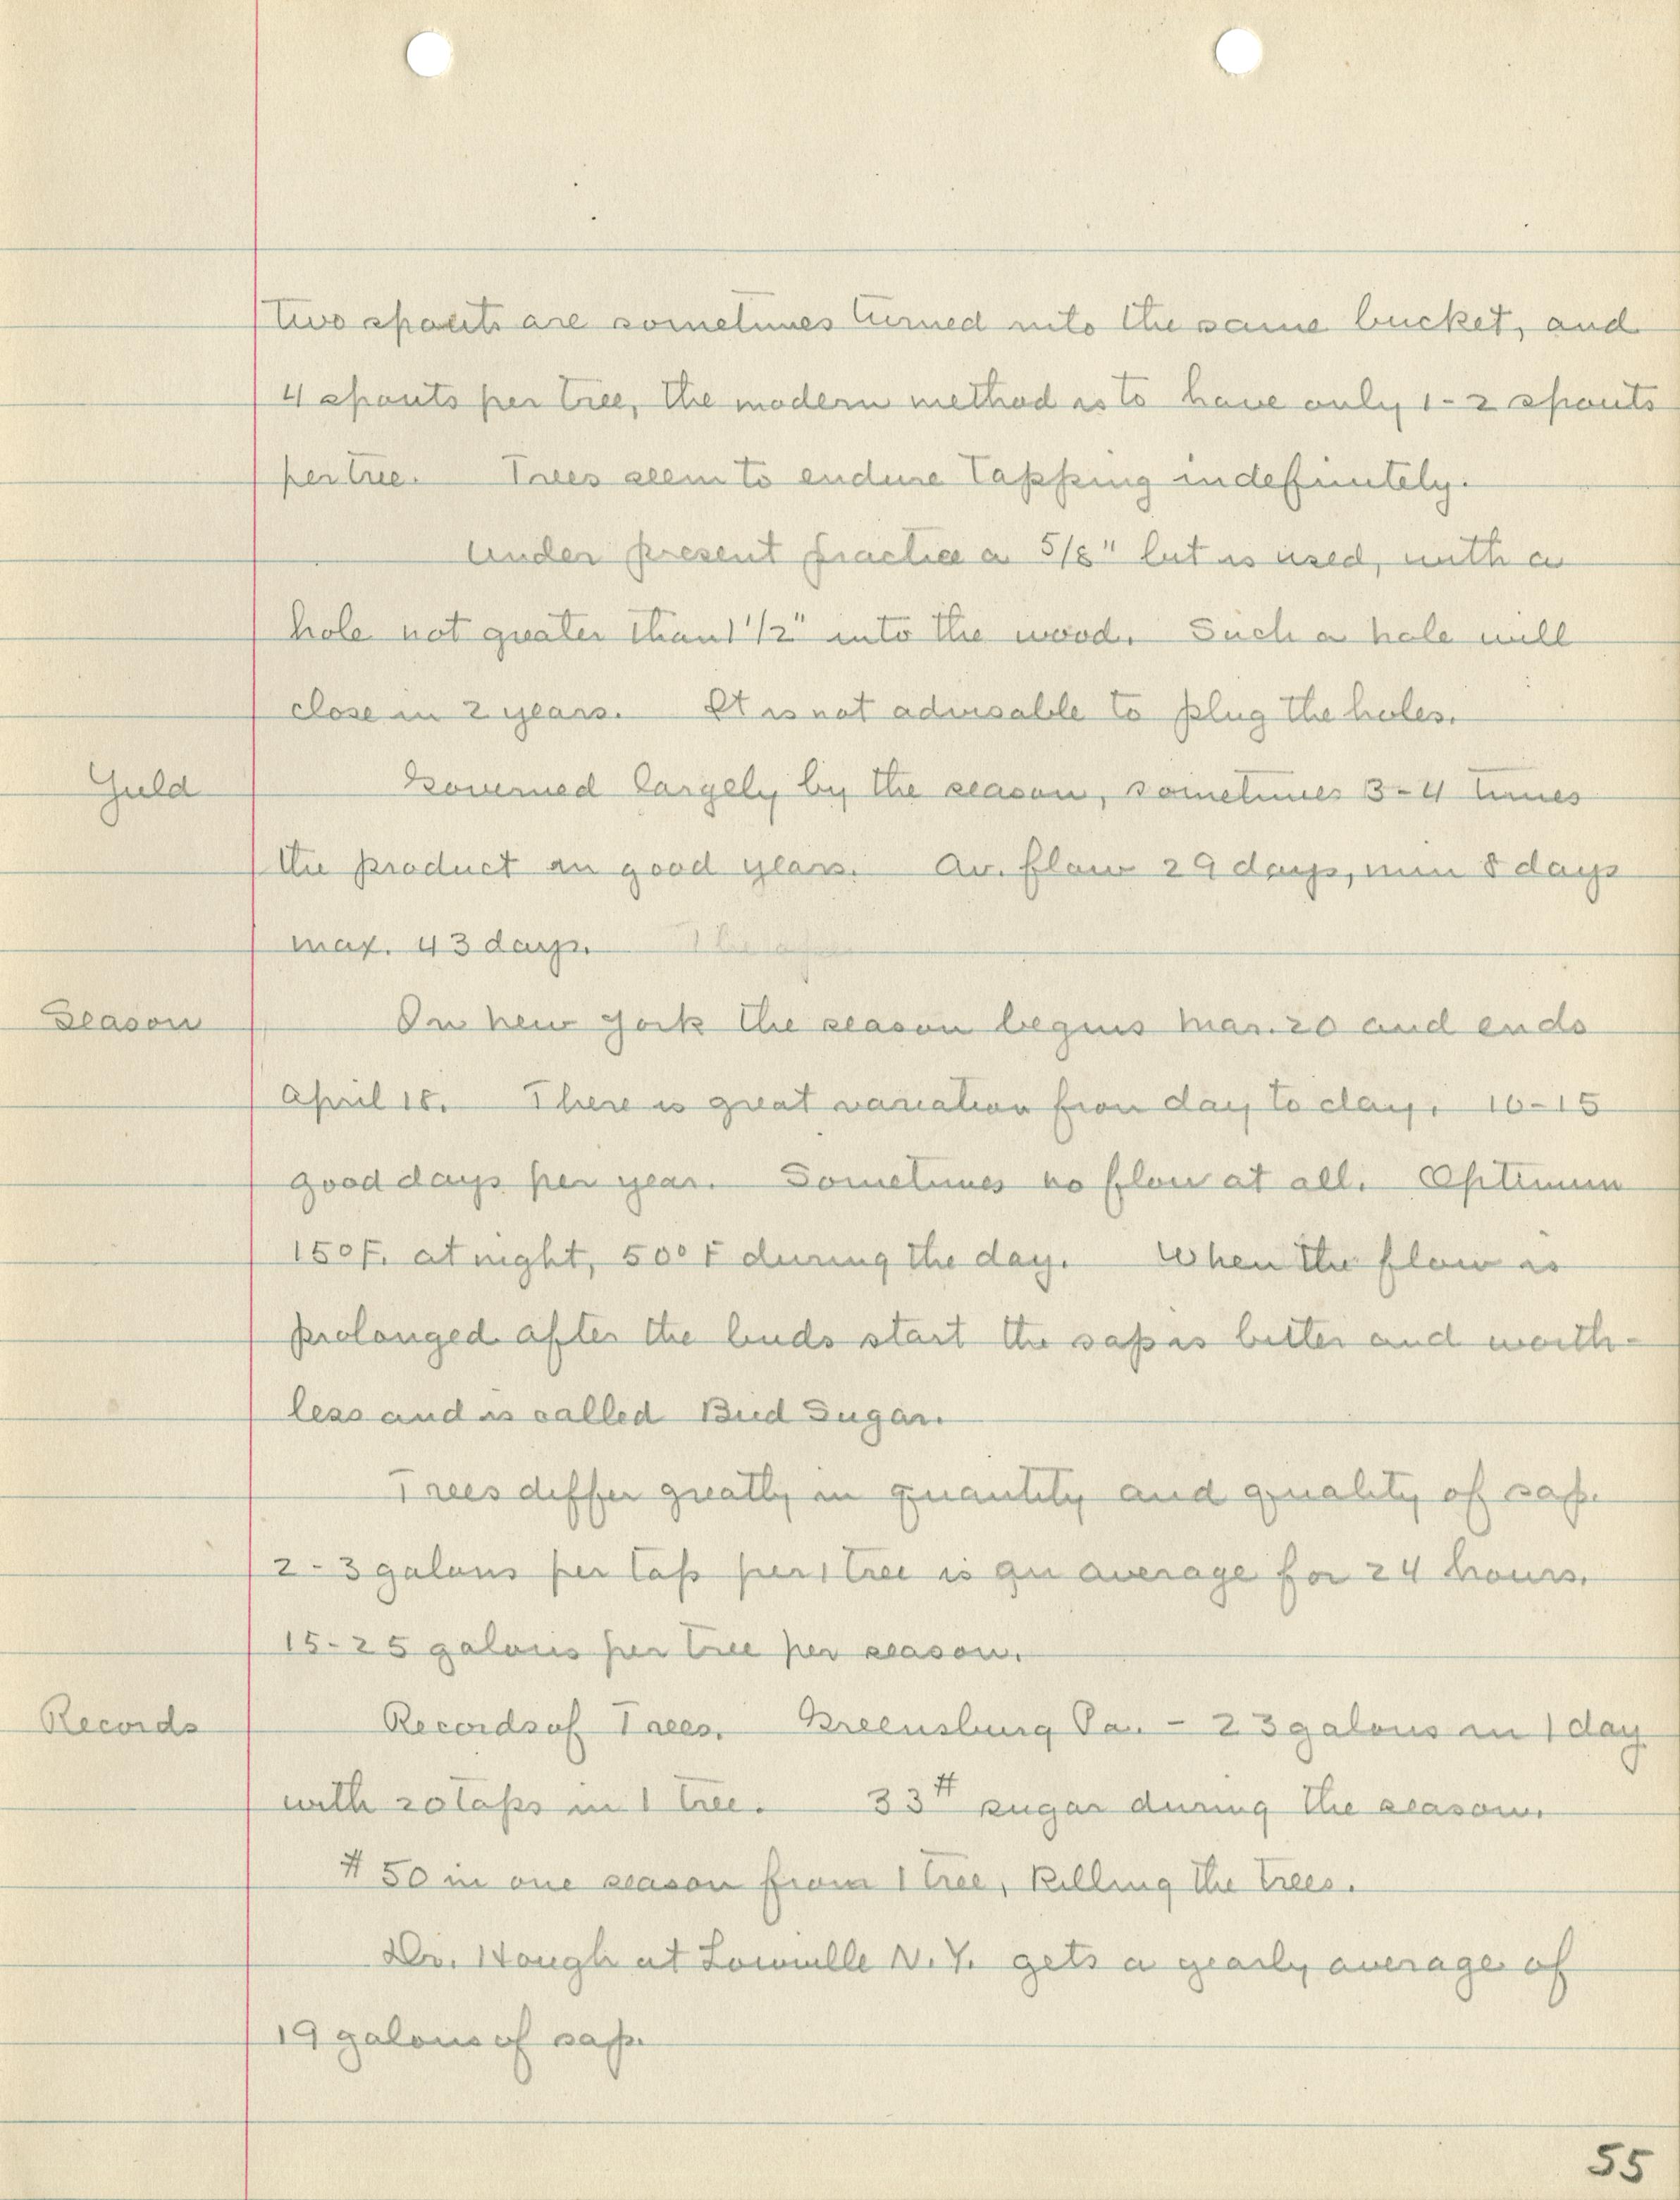 two spouts are sometimes turned into the same bucket, and
4 spouts per tree, the modern method is to have only 1-2 spouts
per tree. Trees seem to endure tapping indefinitely.
Under present practice a 5/8" bit is used, with a
hole not greater than 1 1/2" into the wood. Such a hole will
close in 2 years. It is not advisable to plug the holes.
Yield Governed largely by the season, sometimes 3-4 times
the product in good years. Av. flow 29 days, min 8 days
max. 43 days.
Season In New York the season begins Mar. 20 and ends
April 18. There is great variation from day to day. 10-15
good days per year. Sometimes no flow at all. Optimum
15°F. at night, 50°F during the day. When the flow is
prolonged after the buds start the sap is bitter and worth-
less and is called Bud Sugar.
Trees differ greatly in quantity and quality of sap.
2-3 galons per tap per 1 tree is an average for 24 hours.
15-25 galons per tree per season.
Records Records of Trees. Greensburg Pa. - 23 galons in 1 day
with 20 taps in 1 tree. 33# sugar during the season.
#50 in one season from 1 tree, killing the trees.
Dr. Hough at Lowville N.Y. gets a yearly average of
19 galons of sap.
55